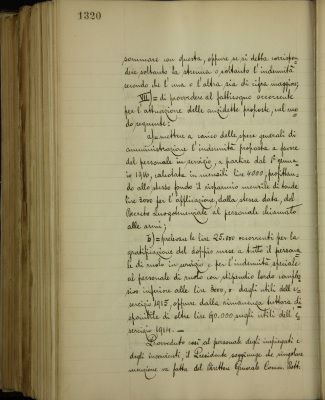 1320
sommare con questa, oppure se si debba corrispon=
dere soltanto la strenna o soltanto l'indennità
secondo che l'una o l'altra sia di cifra maggiore;
VII)= di provvedere al fabbisogno occorrente
per l'attuazione delle anzidette proposte, nel mo=
do seguente:
a) mettere a carico delle spese generali di
amministrazione l'indennità proposta a favore
del personale in servizio, a partire dal 1° genna=
io 1916, calcolata in mensili lire 4000, profittan=
do allo stesso fondo il risparmio mensile di tonde
lire 5000 per l'applicazione, dalla stessa data, del
Decreto Luogotenenziale al personale chiamato
alle armi;
b)= prelevare le lire 25.000 occorrenti per la
gratificazione del doppio mese a tutto il persona=
le di ruolo in servizio e per l'indennità speciale
al personale di ruolo con stipendio lordo comples=
sivo inferiore alle lire 3000, o dagli utili dell'e=
sercizio 1915, oppure dalla rimanenza tuttora di=
sponibile di oltre lire 90.000 sugli utili dell'e=
sercizio 1914. —
Provveduto così al personale degli impiegati e
degli inservienti, il Presidente soggiunge che singolare
menzione va fatta del Direttore Generale Comm. Dott.